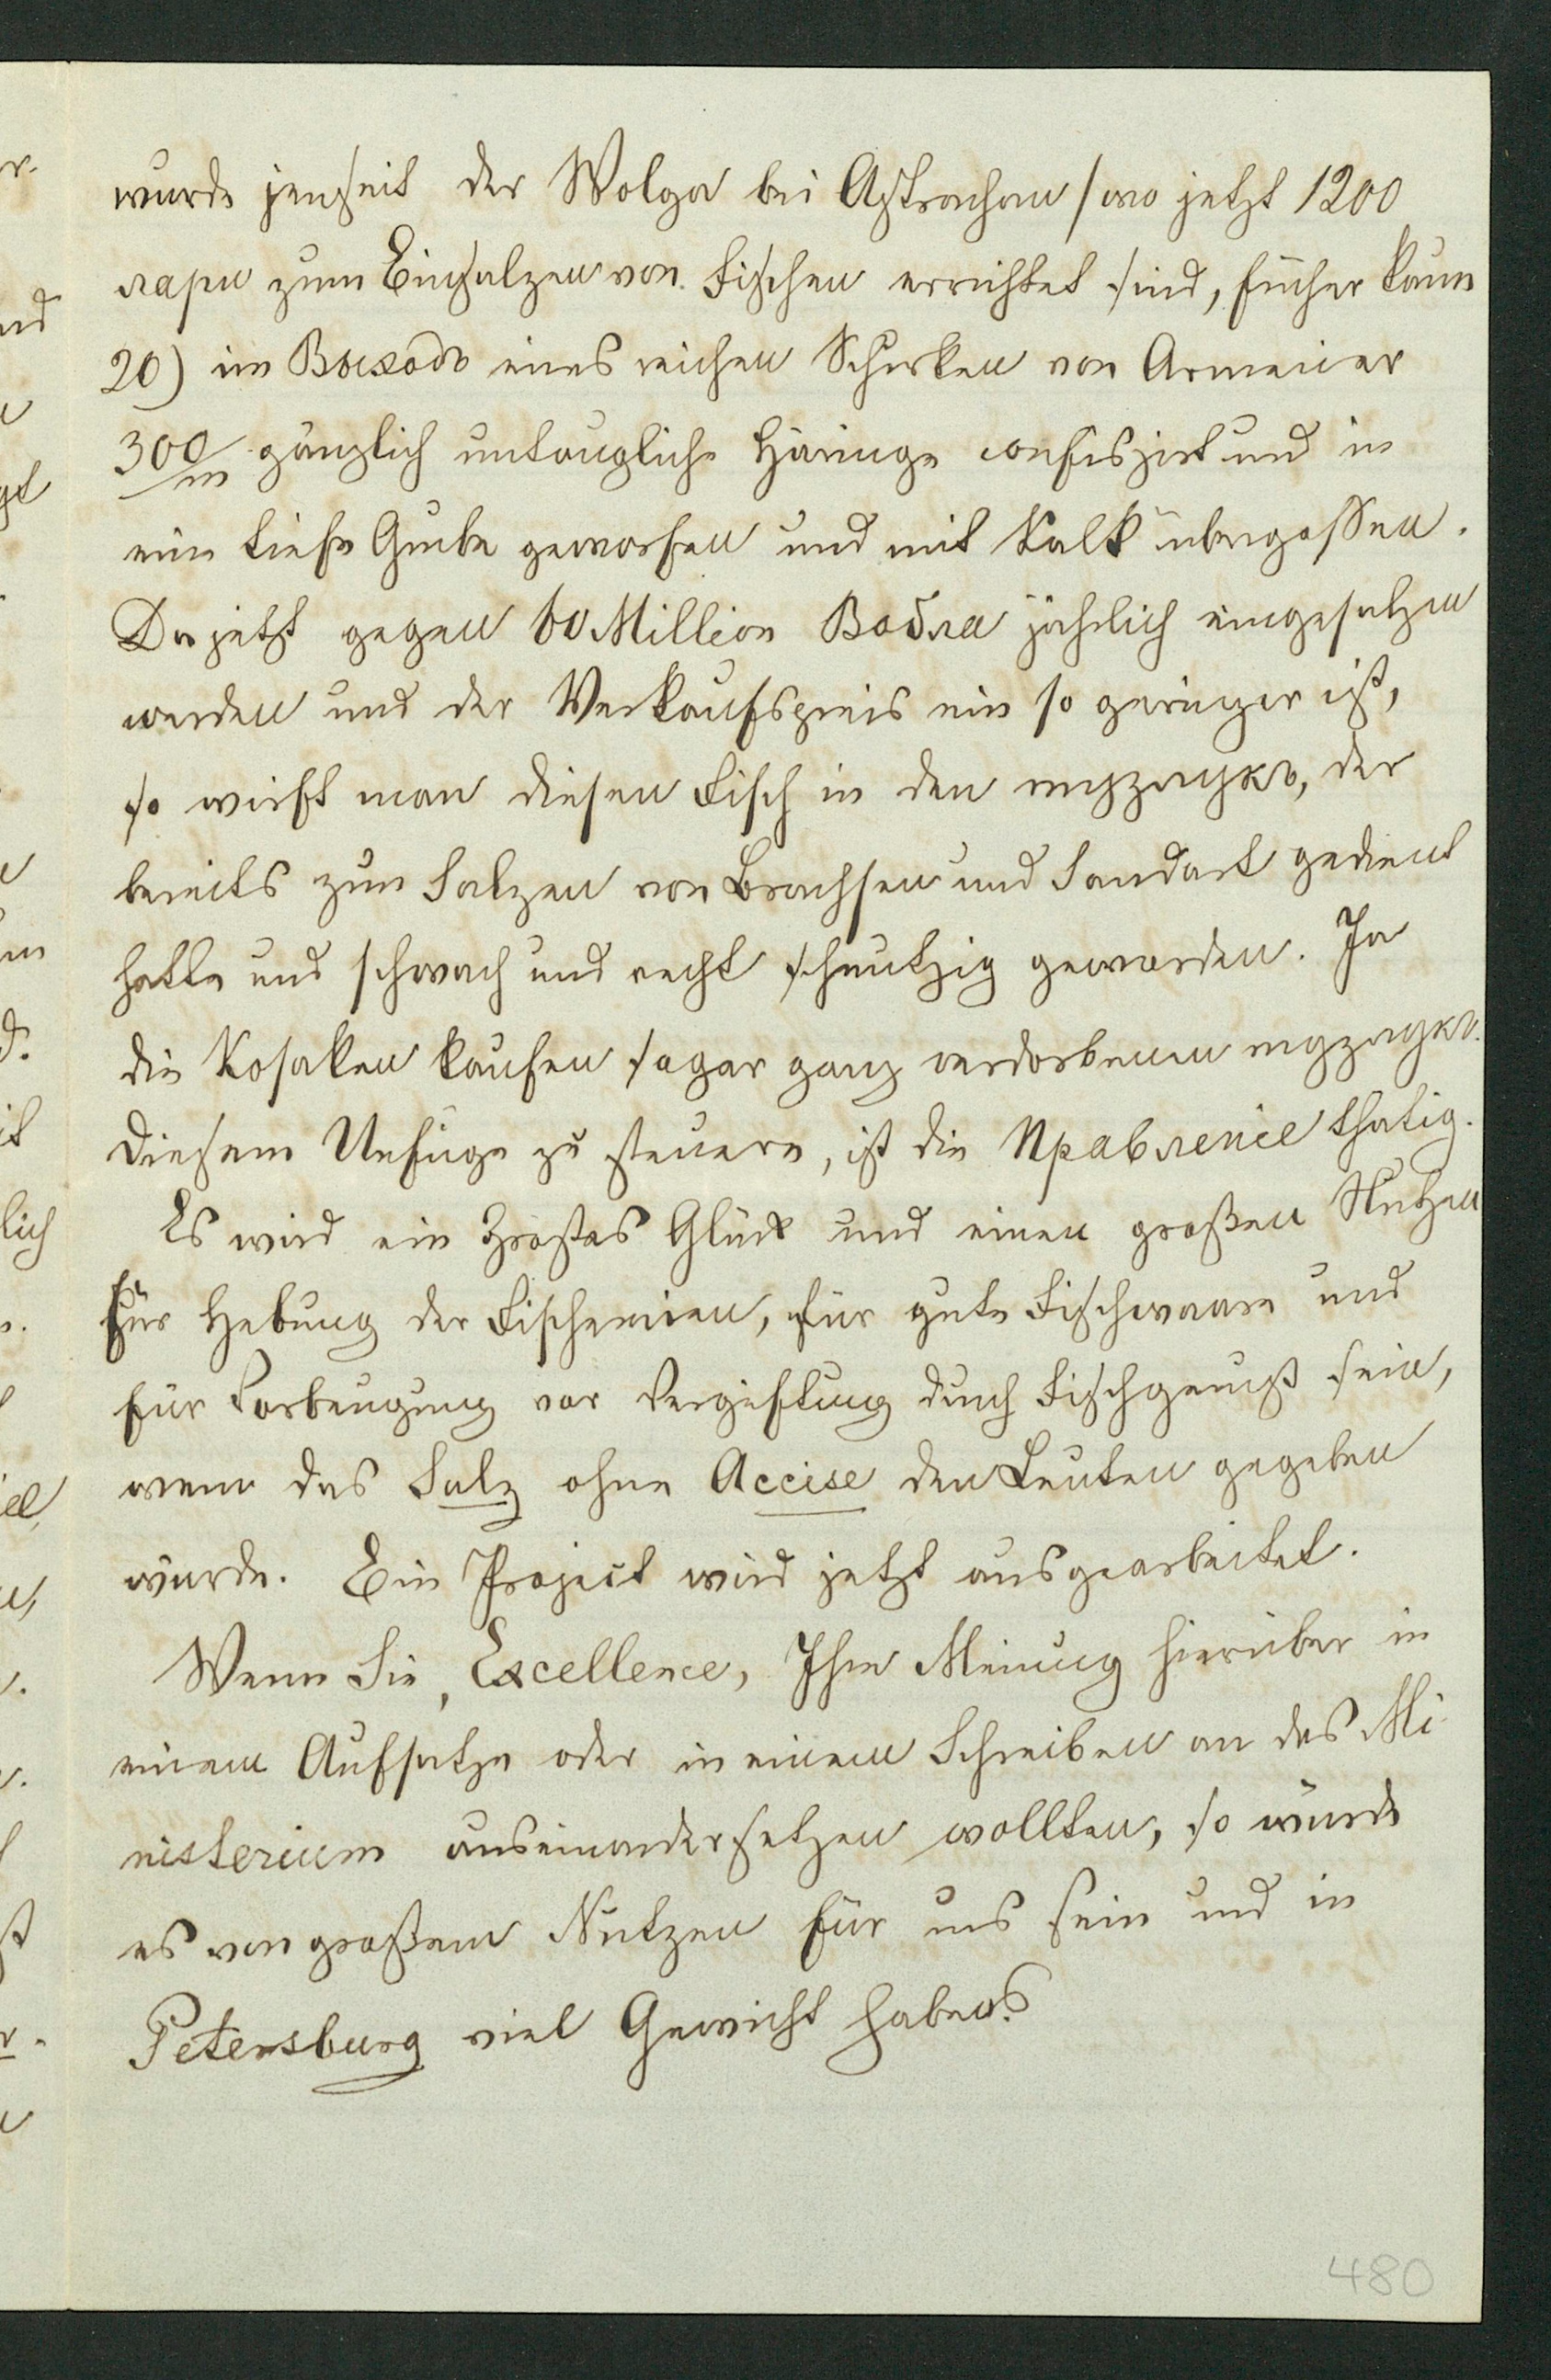 wurde jenseit der Wolga bei Astrachan /wo jetzt 1200
лари zum Einsalzen von Fischen errichtet sind, früher kaum
20) im Выходъ eines reichen Schurken von Armenier
300/m gänzlich untaugliche Häringe confiszirt und in
eine tiefe Grube geworfen und mit Kalk übergossen.
Da jetzt gegen 60 Million Вобла jährlich eingesalzen
werden und der Verkaufspreis ein so geringer ist,
so wirft man diesen Fisch in den тузлукъ, der
bereits zum Salzen von Brachsen und Sandart gedient
hatte und schwach und recht schmutzig geworden. Ja
die Kosaken kaufen sogar ganz verdorbenen тузлукъ.
Diesem Unfuge zu steuern, ist die Правленiе thätig.
Es wird ein großes Glück und einen großen Nutzen
für Hebung der Fischereien, für gute Fischwaare und
für Vorbeugung vor Vergiftung durch Fischgenuß sein,
wenn das Salz ohne Accise den Leuten gegeben
würde. Ein Project wird jetzt ausgearbeitet.
Wenn Sie, Excellence, Ihre Meinung hierüber in
einem Aufsatze oder in einem Schreiben an das Mi-
nisterium auseinandersetzen wollten, so würde
es von großem Nutzen für uns sein und in
Petersburg viel Gewicht haben.
480